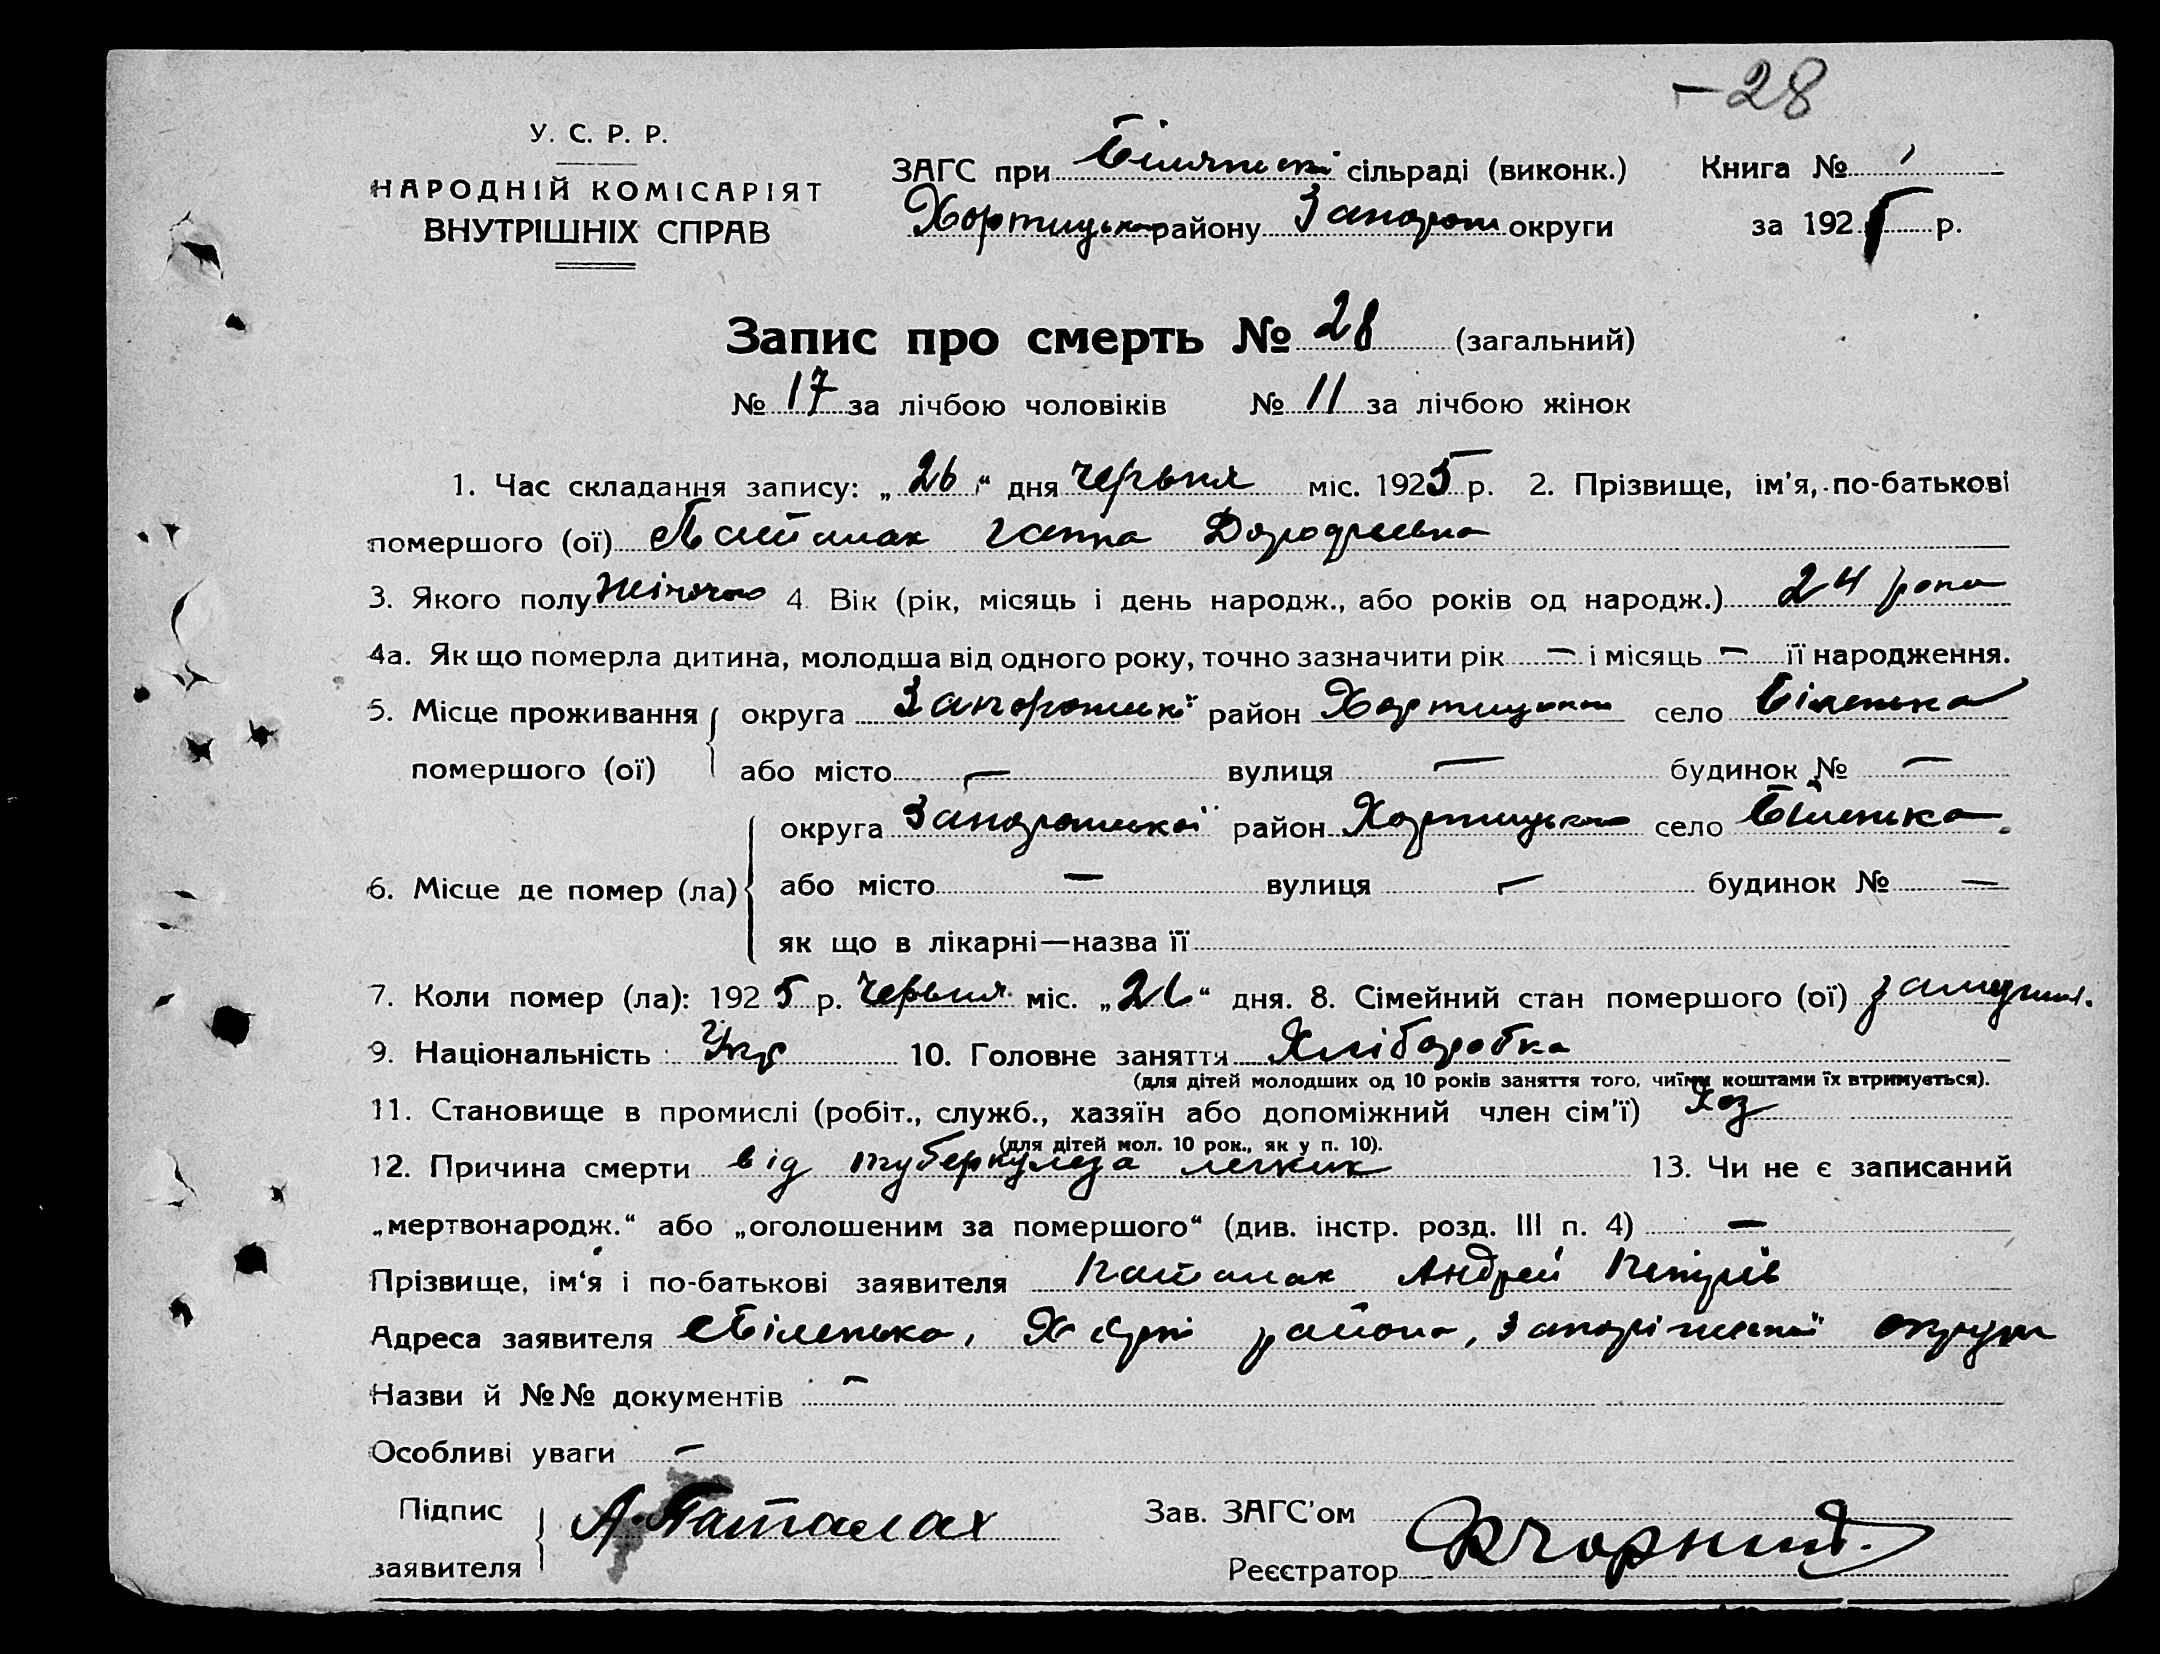 -28
У. С. Р. Р.
НАРОДНІЙ КОМІСАРІЯТ
ВНУТРІШНІХ СПРАВ
ЗАГС при сільраді (виконк.) Книга № 1
Хортицько району Запорож округи за 1925 р.
Запис про смерть № 28 (загальний)
№ 17 за лічбою чоловіків № 11 за лічбою жінок
1. Час складання запису: „26“ дня червня міс. 1925 р. 2. Прізвище, ім'я, по-батькові
помершого (ої) Паталах Ганна
3. Якого полу жіночого 4. Вік (рік, місяць і день народж., або років од народж.) 24 роки
4а. Як що померла дитина, молодша від одного року, точно зазначити рік — і місяць — її народження.
5. Місце проживання округа район Хортицький село Біленька
помершого (ої) або місто — вулиця — будинок № —
округа Запорожської район Хортицького село Біленька.
6. Місце де помер (ла) або місто — вулиця — будинок № —
як що в лікарні—назва її
7. Коли помер (ла): 1925 р. червня міс. „26“ дня. 8. Сімейний стан помершого (ої)
9. Національність: Укр 10. Головне заняття Хліборобка
(для дітей молодших од 10 років заняття того, чиїми коштами їх втримується).
11. Становище в промислі (робіт., служб., хазяїн або допоміжний член сім'ї) Хаз
(для дітей мол. 10 рок., як у п. 10).
12. Причина смерти від туберкулеза легких 13. Чи не є записаний
„мертвонародж.“ або „оголошеним за помершого“ (див. інстр. розд. III п. 4) —
Прізвище, ім‘я і по-батькові заявителя Паталах Андрей
Адреса заявителя Біленька, Хорт района, округи
Назви й №№ документів —
Особливі уваги —
Підпис А. Паталах Зав. ЗАГС'ом
заявителя Реєстратор Чорний